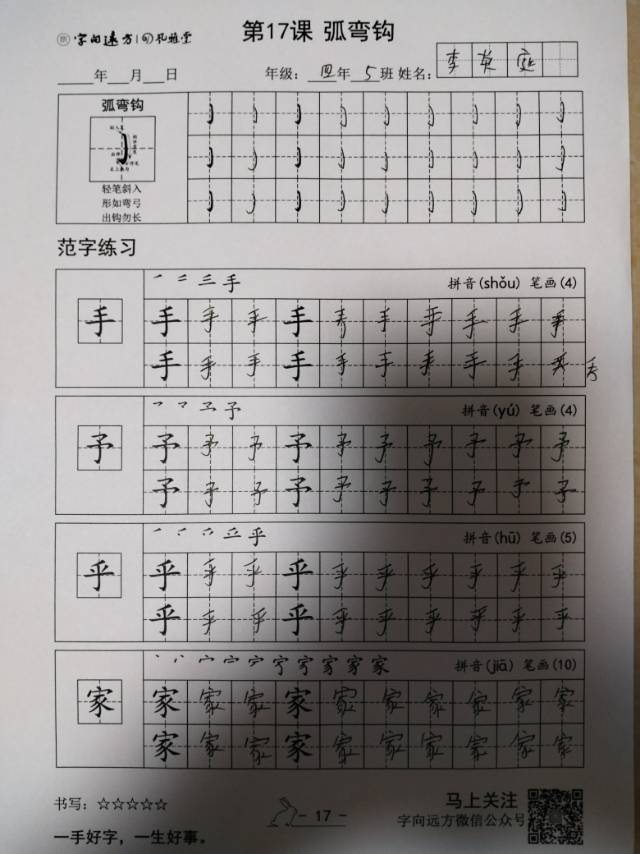 字向远方 孔雅堂
第17课 弧弯钩
年 月 日 年级：四年5班 姓名：李英庭
弧弯钩
轻笔斜入
形如弯弓
出钩勿长
范字练习
三手 拼音(shǒu) 笔画(4)
手 手 手 手 手 手 手 手 手 手 手
手 手 手 手 手 手 手 手 手 手 手
予 拼音(yú) 笔画(4)
予 予 予 予 予 予 予 予 予 予 予
予 予 予 予 予 予 予 予 予 予
乎 拼音(hū) 笔画(5)
乎 乎 乎 乎 乎 乎 乎 乎 乎 乎 乎
乎 乎 乎 乎 乎 乎 乎 乎 乎 乎
家 拼音(jiā) 笔画(10)
家 家 家 家 家 家 家 家 家 家 家
家 家 家 家 家 家 家 家 家 家
书写：☆☆☆☆☆
一手好字，一生好事。
- 17 -
马上关注
字向远方微信公众号